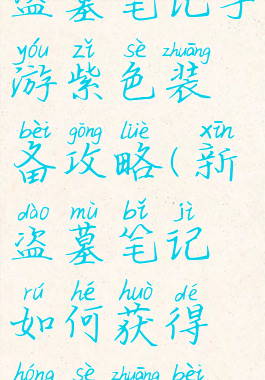 盗墓笔记手
yóu zǐ sè zhuāng
游紫色装
bèi gōng lüè xīn
备攻略(新
dào mù bǐ jì
盗墓笔记
rú hé huò dé
如何获得
hóng sè zhuāng bèi